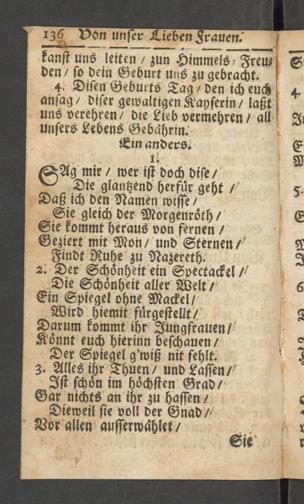 136 Von unser Lieben Frauen.
kanst uns leiten / zun Himmels-Freu-
den / so dein Geburt uns zu gebracht.
4. Disen Geburts Tag / den ich euch
ansag / diser gewaltigen Kayserin / laßt
uns verehren / die Lieb vermehren / all
unsers Lebens Gebährin.
Ein anders.
1.
SAg mir / wer ist doch dise /
Die glantzend herfür geht /
Daß ich den Namen wisse /
Sie gleich der Morgenröth /
Sie kommt heraus von fernen /
Geziert mit Mon / und Sternen /
Findt Ruhe zu Nazereth.
2. Der Schönheit ein Spectackel /
Die Schönheit aller Welt /
Ein Spiegel ohne Mackel /
Wird hiemit fürgestellt /
Darum kommt ihr Jungfrauen /
Könnt euch hierinn beschauen /
Der Spiegel g'wiß nit fehlt.
3. Alles ihr Thuen / und Lassen /
Ist schön im höchsten Grad /
Gar nichts an ihr zu hassen /
Dieweil sie voll der Gnad /
Vor allen ausserwählet /
Sie